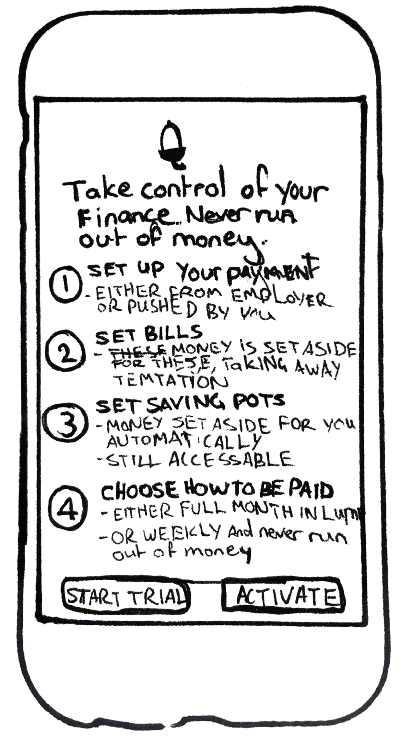 Take control of your
Finance. Never run
out of money.
1 SET UP Your PAYMENT
- EITHER FROM EMPLOYER
OR PUSHED BY YOU
2 SET BILLS
- THESE MONEY IS SET ASIDE
FOR THESE, TAKING AWAY
TEMTATION
3 SET SAVING POTS
- MONEY SET ASIDE FOR YOU
AUTOMATICALLY
- STILL ACCESSABLE
4 CHOOSE HOW TO BE PAID
- EITHER FULL MONTH IN LUMP
- OR WEEKLY And never run
out of money
START TRIAL ACTIVATE